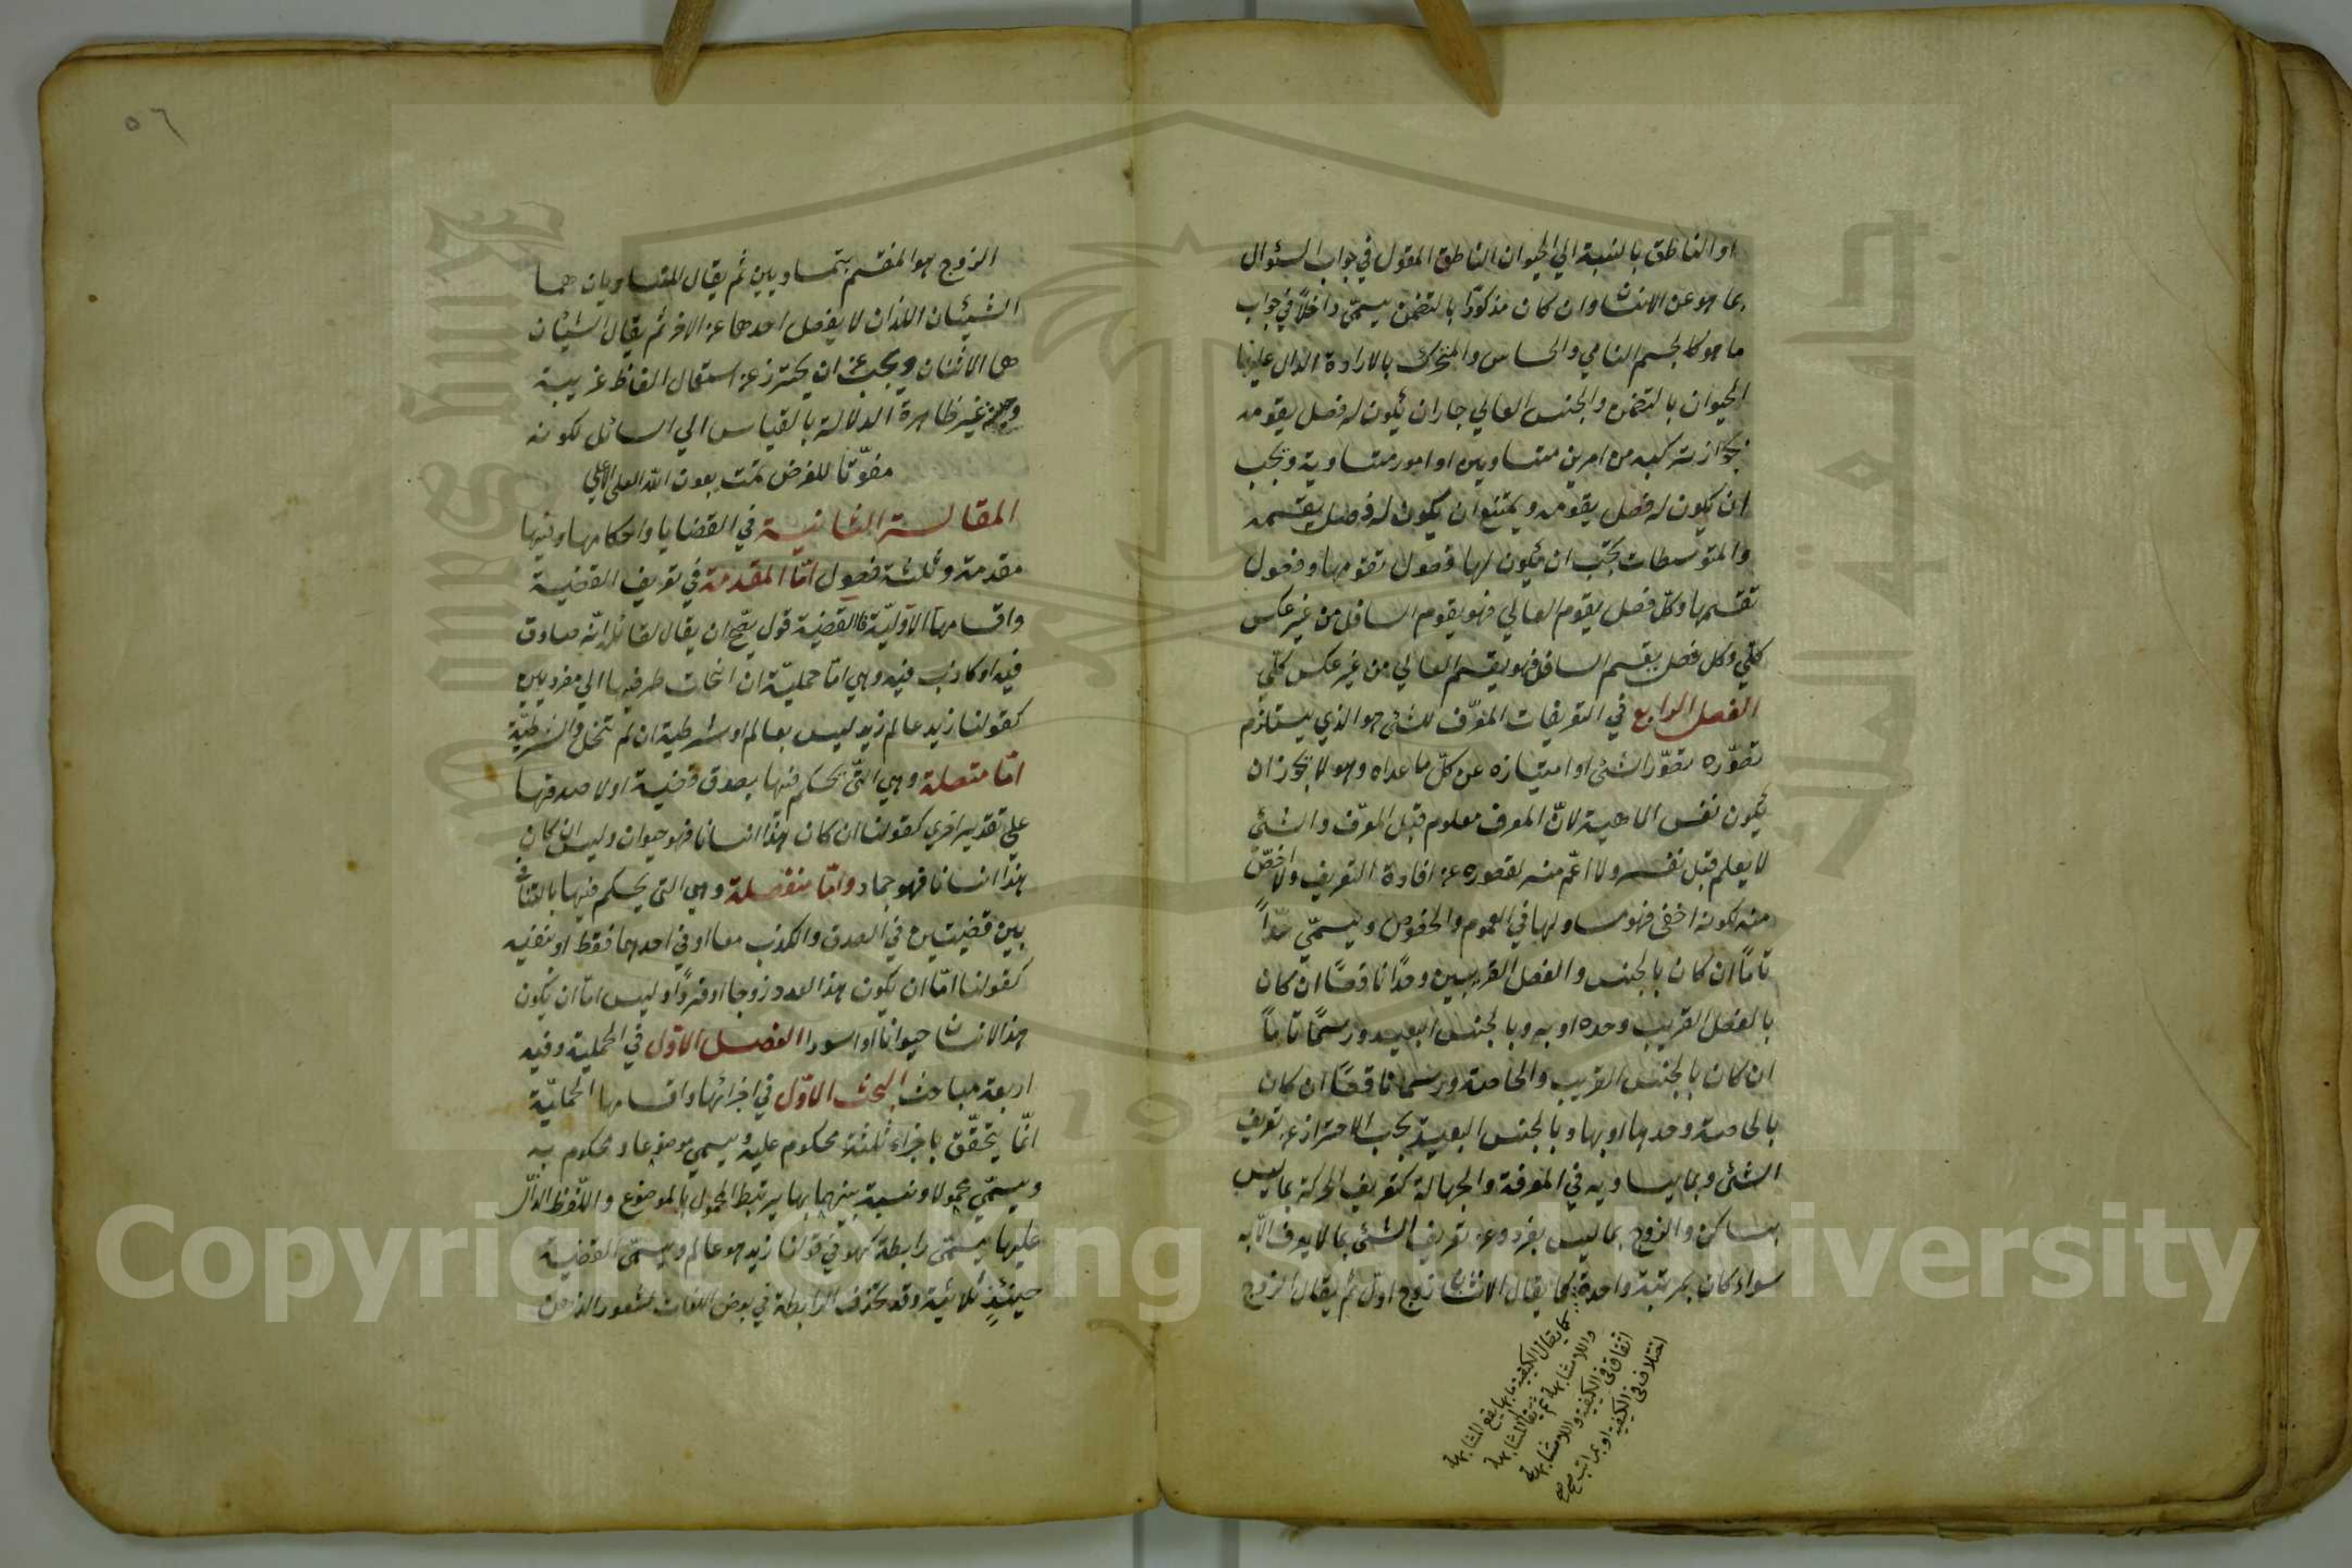 او الناطق بالنسبة الي الحيوان الناطق المقول في جواب السئوال
بما هو عن الانسان وان كان مذكورًا بالتضمن يسمّى داخلاً في جواب
ما هو كالجسم النامي والحساس والمتحرك بالارادة الدال عليها
الحيوان بالتضمن والجنس العالي جاز ان يكون له فصل يقومه
لجواز تركبه من امرين متساويين او امور متساوية ويجب
ان يكون له فصل يقومه ويمتنع ان يكون له فصل يقسمه
والمتوسطات يجب ان يكون لها فصول تقومها وفصول
تقسمها وكلّ فصل يقوم العالي فهو يقوم السافل من غير عكس
كلّي وكل فصل يقسم السافل فهو يقسم العالي من غير عكس كلّي
الفصل الرابع في التعريفات المعرّف للشئ هو الذي يستلزم
تصوّره تصوّر الشئ او امتيازه عن كلّ ما عداه وهو لا يجوز ان
يكون نفس الماهية لانّ المعرف معلوم قبل المعرّف والشئ
لا يعلم قبل نفسه ولا اعمّ منه لقصوره عن افادة التعريف ولا اخصّ
منه لكونه اخفى فهو مساو لها في العموم والخصوص ويسمّي حدّاً
تامّاً ان كان بالجنس والفصل القريبين وحدًا ناقصًا ان كان
بالفصل القريب وحده او به وبالجنس البعيد ورسمًا تامّاً
ان كان بالجنس القريب والخاصة ورسما ناقصًا ان كان
بالخاصة وحدها او بها وبالجنس البعيد يجب الاحتراز عن تعريف
الشئ وبما يساويه في المعرفة والجهالة كتعريف الحركة بما ليس
بساكن والزوج بما ليس بفرد وعن تعريف الشئ بما لا يعرف الّا به
سواء كان بمرتبة واحدة كما يقال الاثنان زوج اول ثم يقال الزوج
كما يقال الكيفية ما بها يقع المشابهة
واللامشابهة ثم يقال المشابهة
اتفاق في الكيفية واللامشابهة
اختلاف في الكيفية او بمراتب صح
٥٦
الزوج هو المنقسم بمتساويين ثم يقال المتساويان هما
الشيئان اللذان لا يفضل احدهما عن الاخر ثم يقال الشيئان
هما الاثنان ويجب ان يحترز عن استعمال الفاظ غريبة
وحشية غير ظاهرة الدلالة بالقياس الي السائل لكونه
مفوّتا للغرض تمت بعون الله العلي الاعلي
المقالة الثانية في القضايا واحكامها وفيها
مقدمة وثلثة فصول امّا المقدمة في تعريف القضية
واقسامها الاوّليّة فالقضية قول يصّح ان يقال لقائله انّه صادق
فيه او كاذب فيه وهي امّا حمليّة ان انحلت طرفيها الي مفردين
كقولنا زيد عالم زيد ليس بعالم او شرطية ان لم تنحل والشرطيّة
امّا متصلة وهي التّي يحكم فيها بصدق قضية او لا صدقها
علي تقدير اخري كقولنا ان كان هذا انسانا فهو حيوان وليس ان كان
هذا انسانا فهو جماد وامّا منفصلة وهي التي يحكم فيها بالتنافي
بين قضيتين في الصدق والكذب معا او في احدهما فقط او بنفيه
كقولنا امّا ان يكون هذا العدد زوجا او فردًا وليس امّا ان يكون
هذا الانسان حيوانا او اسودا الفصل الاوّل في الحملية وفيه
اربعة مباحث البحث الاوّل في اجزائها واقسامها الحمليّة
انّما يتحقّق باجزاء ثلثة محكوم عليه ويسمي موضوعا ومحكوم به
ويسمّي محمولا ونسبة بينهما بها يرتبط المحمول بالموضوع واللّفظ الدّالّ
عليها يسمّى رابطة كهو في قولنا زيد هو عالم ويسمّى القضية
حينئذٍ ثلاثية وقد يحذف الرابطة في بعض اللغات لشعور الذهن
Copyright © King Saud University